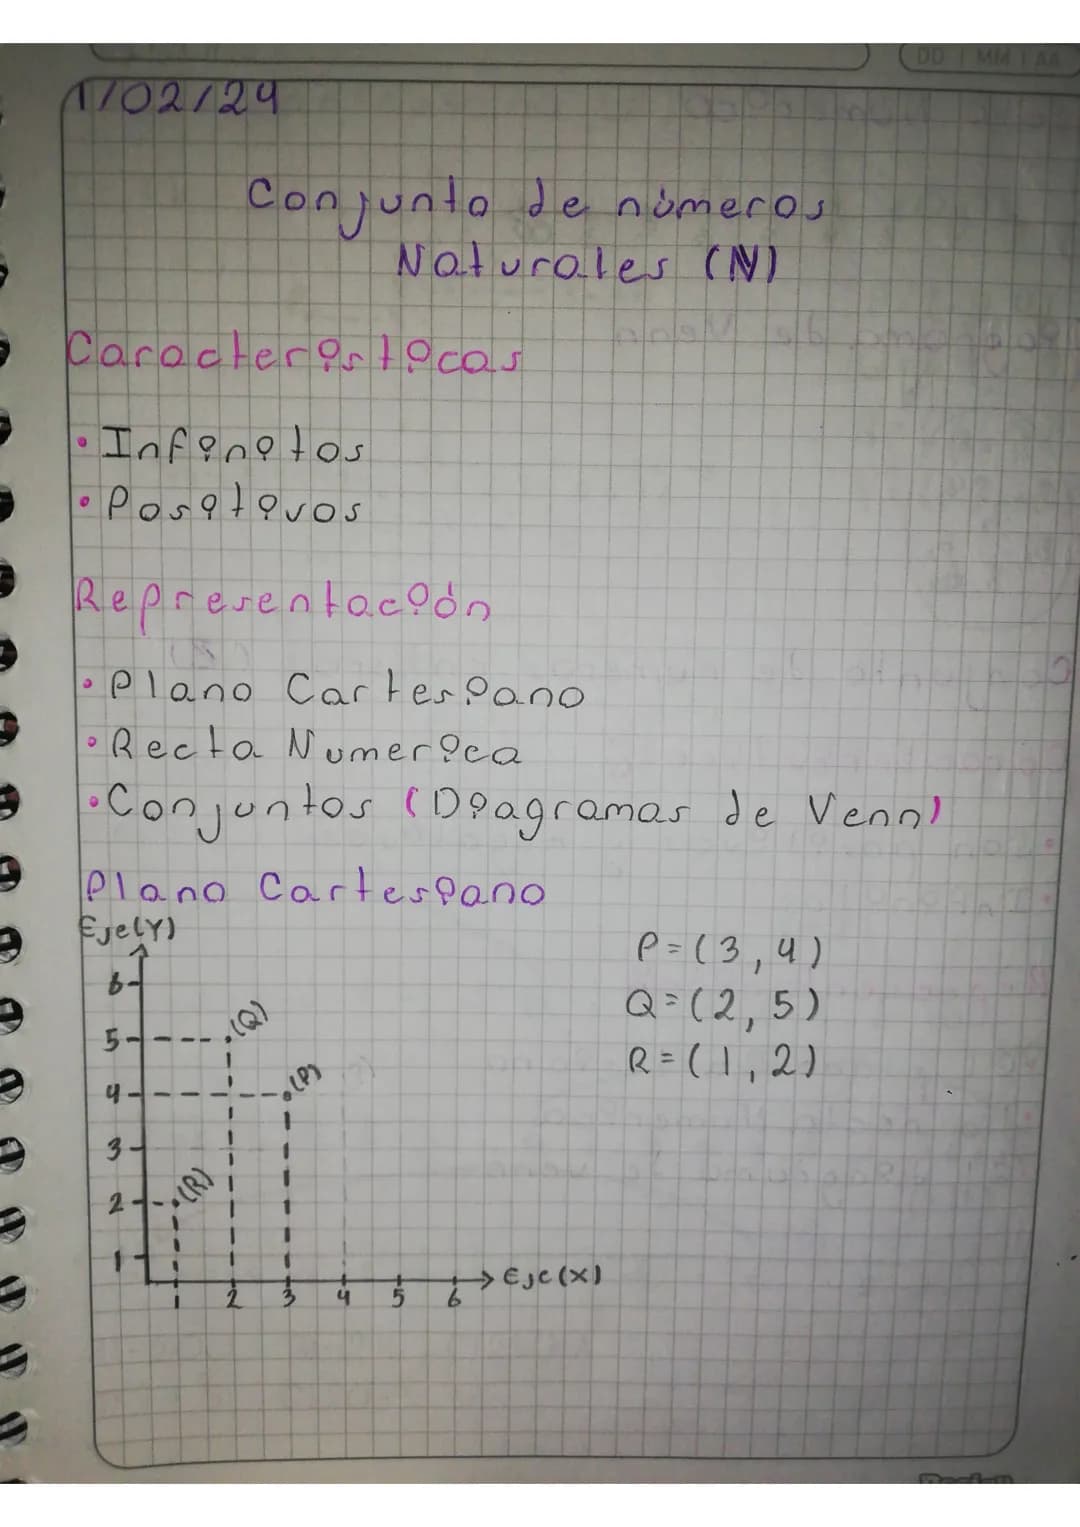 DD MM AA
1/02/24
Conjunto de números
Naturales (N)
Características
• Infinitos
• Positivos
Representación
• Plano Cartesiano
• Recta Numerica
• Conjuntos (Diagramas de Venn)
Plano Cartesiano
Eje(Y)
P=(3,4)
6
Q=(2,5)
5
(Q)
R=(1,2)
4
(P)
3
2
(R)
1
Eje(X)
1 2 3 4 5 6